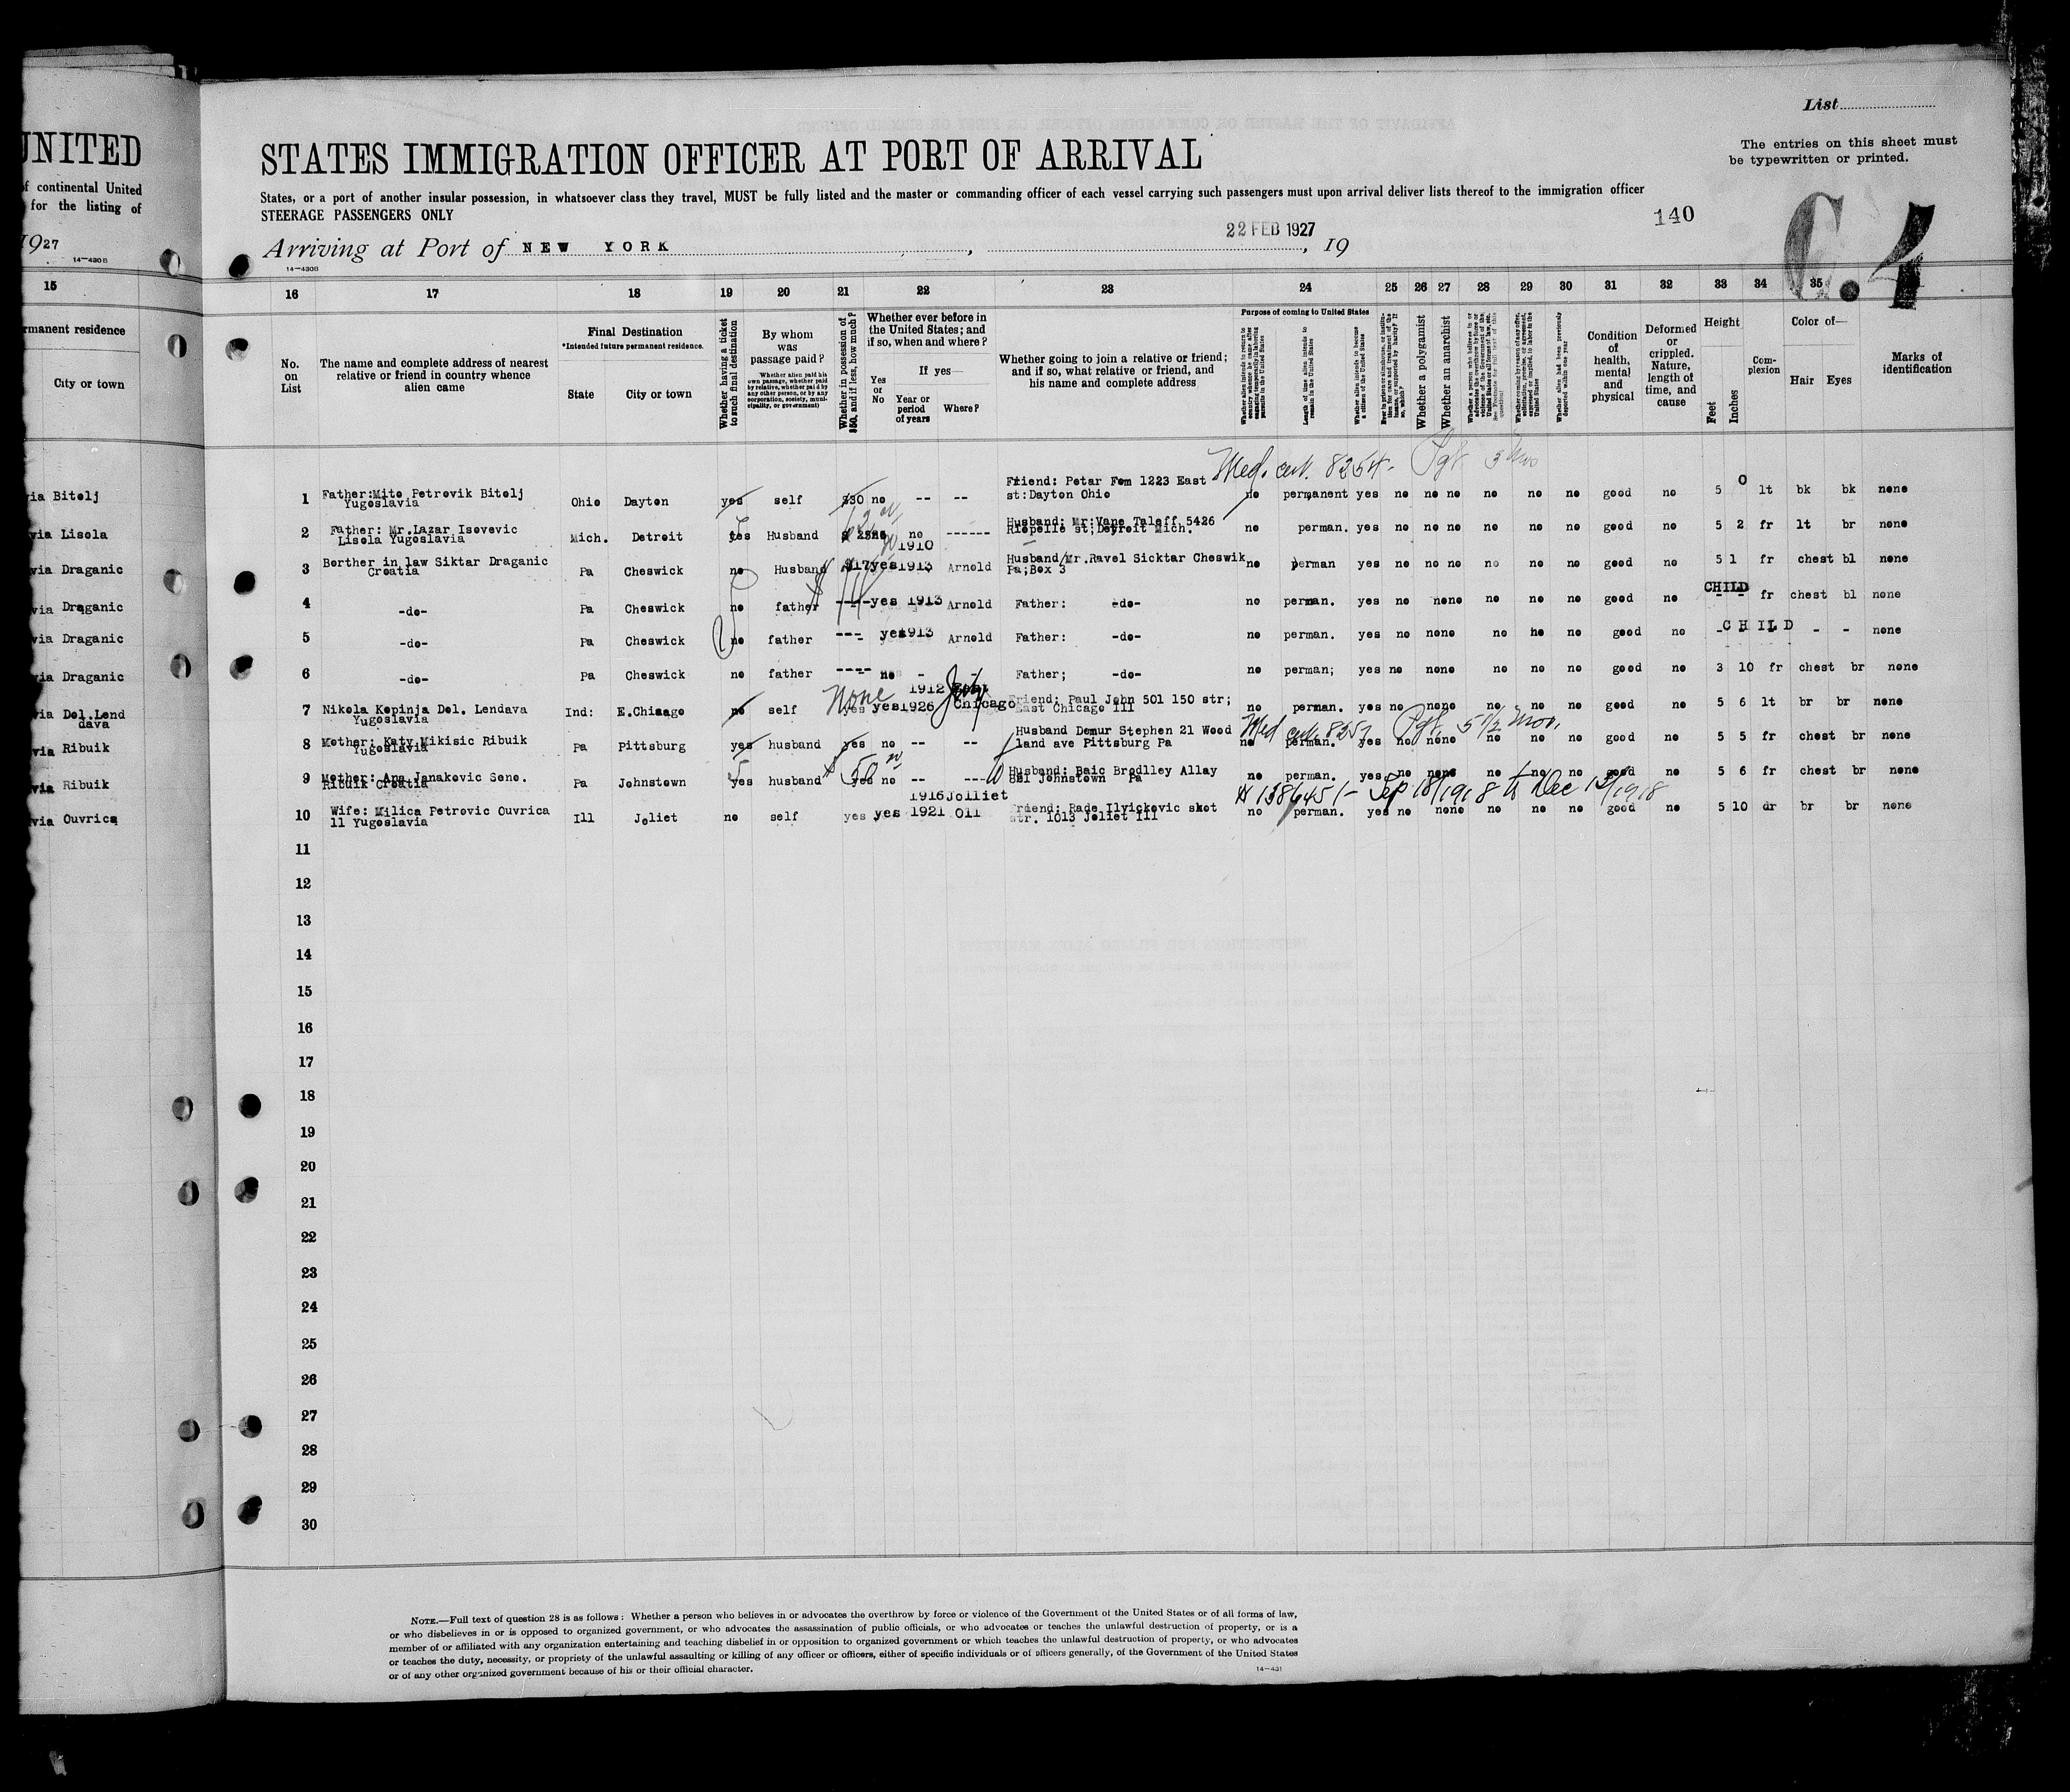 List
The entries on this sheet must
be typewritten or printed.
UNITED
STATES IMMIGRATION OFFICER AT PORT OF ARRIVAL
of continental United
for the listing of
States, or a port of another insular possession, in whatsoever class they travel, MUST be fully listed and the master or commanding officer of each vessel carrying such passengers must upon arrival deliver lists thereof to the immigration officer
STEERAGE PASSENGERS ONLY
140
C.4
1927
14—430B
Arriving at Port of NEW YORK, 22 FEB 1927, 19
14—430B
15 16 17 18 19 20 21 22 23 24 25 26 27 28 29 30 31 32 33 34 35
permanent residence
City or town
No. on List
The name and complete address of nearest
relative or friend in country whence
alien came
Final Destination
*Intended future permanent residence.
State City or town
Whether having a ticket
to such final destination
By whom
was
passage paid?
Whether alien paid his
own passage, whether paid
by relative, whether paid by
any other person, or by any
corporation, society, muni-
cipality, or government)
Whether in possession of
$50, and if less, how much?
Whether ever before in
the United States; and
if so, when and where?
Yes or No
If yes—
Year or
period
of years
Where?
Whether going to join a relative or friend;
and if so, what relative or friend, and
his name and complete address
Purpose of coming to United States
Whether alien intends to return to
country whence he came after
engaging temporarily in laboring
pursuits in the United States
Length of time alien intends to
remain in the United States
Whether alien intends to become
a citizen of the United States
Whether a polygamist
Whether an anarchist
Whether alien had been previously
deported within one year
Condition
of
health,
mental
and
physical
Deformed
or
crippled.
Nature,
length of
time, and
cause
Height
Feet Inches
Com-
plexion
Color of—
Hair Eyes
Marks of
identification
Med. cert. 8254.
via Bitolj 1 Father:Mito Petrovik Bitolj Yugoslavia Ohio Dayton yes self $30 no -- -- Friend: Petar Fom 1223 East st:Dayton Ohio no permanent yes no no no no no no good no 5 0 lt bk bk none
via Lisola 2 Father: Mr.Lazar Isovevic Lisola Yugoslavia Mich. Detroit yes Husband no ------ Husband: Mr:Vane Taleff 5426 Riopelle st;Detroit Mich. no perman. yes no no no no no no good no 5 2 fr lt br none
via Draganic 3 Borther in law Siktar Draganic Croatia Pa Cheswick no Husband $17 yes 1910 1913 Arnold Husband/Mr.Ravel Sicktar Cheswik Pa;Box 3 no perman yes no no no no no no good no 5 1 fr chest bl none
via Draganic 4 -do- Pa Cheswick no father ---- yes 1913 Arnold Father: -do- no perman. yes no none no no no good no CHILD fr chest bl none
via Draganic 5 -do- Pa Cheswick no father --- yes 1913 Arnold Father: -do- no perman. yes no none no no no good no CHILD - - none
via Draganic 6 -do- Pa Cheswick no father ---- no - - Father; -do- no perman; yes no none no no no good no 3 10 fr chest br none
via Dol.Lend dava 7 Nikola Kopinja Dol. Lendava Yugoslavia Ind: E.Chicago no self None yes yes 1912 1926 Chicago Friend: Paul John 501 150 str; East Chicago Ill no perman. yes no none no no no good no 5 6 lt br br none
Med cert. 8257 5 1/2 mos.
via Ribuik 8 Mother: Katy Mikisic Ribuik Yugoslavia Pa Pittsburg yes husband yes no -- -- Husband Demur Stephen 21 Wood land ave Pittsburg Pa no perman. yes no none no no no good no 5 5 fr chest br none
via Ribuik 9 Mother: Ana Janakovic Seno. Ribuik Croatia Pa Johnstown yes husband 50 yes no -- --- Husband: Baic Brodlley Allay Johnstown Pa no perman. yes no none no no no good no 5 6 fr chest br none
# 138645 1- Sep 18/1918 to Dec 13/1918
via Ouvrica 10 Wife: Milica Petrovic Ouvrica ll Yugoslavia Ill Joliet no self yes yes 1916 1921 Jolliet Oll Friend: Rade Ilyickovic skot str. 1013 Joliet Ill no perman. yes no none no no no good no 5 10 dr br br none
11
12
13
14
15
16
17
18
19
20
21
22
23
24
25
26
27
28
29
30
NOTE.—Full text of question 28 is as follows: Whether a person who believes in or advocates the overthrow by force or violence of the Government of the United States or of all forms of law,
or who disbelieves in or is opposed to organized government, or who advocates the assassination of public officials, or who advocates or teaches the unlawful destruction of property, or is a
member of or affiliated with any organization entertaining and teaching disbelief in or opposition to organized government or which teaches the unlawful destruction of property, or who advocates
or teaches the duty, necessity, or propriety of the unlawful assaulting or killing of any officer or officers, either of specific individuals or of officers generally, of the Government of the United States
or of any other organized government because of his or their official character.
14—431